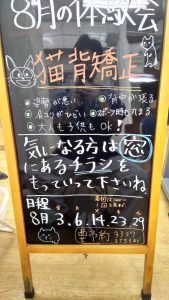 8月の体験会
猫背矯正
姿勢が悪い
背中が張る
肩コリがひどい
スポーツ時も丸まる
大人も子供もOk!
気になる方は窓
にあるチラシを
もっていって下さいね。
日程
8月 3,6,14,23,29
要予約